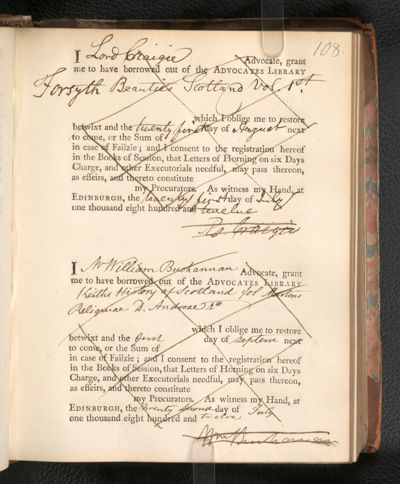 108.
I Lord Craigie Advocate, grant
me to have borrowed out of the ADVOCATES LIBRARY
Forsyth Beauties Scotland Vol. 1st
which I oblige me to restore
betwixt and the twenty first day of August next
to come, or the Sum of
in case of Failzie; and I consent to the registration hereof
in the Books of Session, that Letters of Horning on six Days
Charge, and other Executorials needful, may pass thereon,
as effeirs, and thereto constitute
my Procurators. As witness my Hand, at
EDINBURGH, the twenty first day of July
one thousand eight hundred and twelve
Ro. Craigie
I Mr William Buchannan Advocate, grant
me to have borrowed out of the ADVOCATES LIBRARY
Keiths History of Scotland fol
Reliquiae D. Andreae 4o
which I oblige me to restore
betwixt and the first day of Septem next
to come, or the Sum of
in case of Failzie; and I consent to the registration hereof
in the Books of Session, that Letters of Horning on six Days
Charge, and other Executorials needful, may pass thereon,
as effeirs, and thereto constitute
my Procurators. As witness my Hand, at
EDINBURGH, the twenty second day of July
one thousand eight hundred and twelve
Wm Buchannan